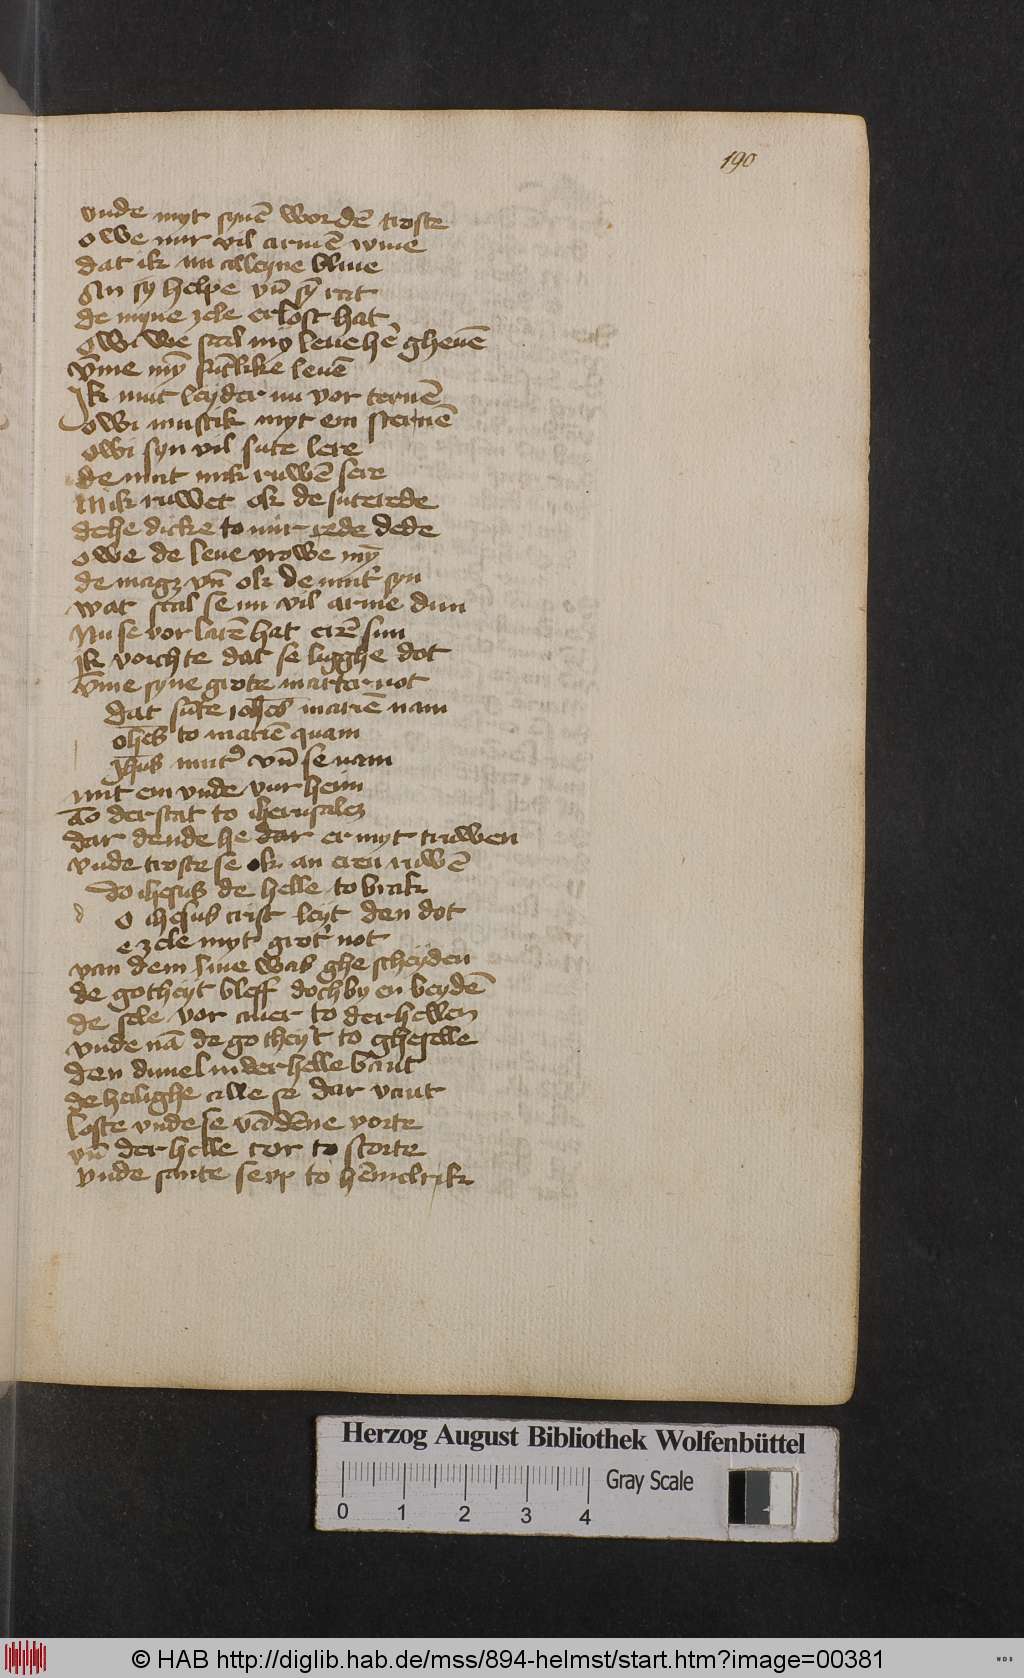 190
vnde myt synē wordē troste
owe mir vil armē wiue
dat ik nu alleyne bliue
An sy helpe vn̄ sȳ rat
de myne zele erlost hat
Owi we scal my leue hē gheuē
vm̄e mȳ suslike leuē
Ik mut leyder nu vor teruē
owi mustik myt em steruē
owi syn vil sute lere
de mut mik ruwē sere
Mik ruwet ok de sute rede
de he dicke to mir rede dede
owe de leue vrowe mȳ
de magz vn̄ ok de mut' syn
wat scal se nu vil arme dun
Nu se vor latē hat erē sun
Ik vorchte dat se ligghe dot
vm̄e syne grote marter not
dat sūte ioh̄es mariē nam
oh̄es to mariē quam
ih̄us mut' vn̄ se nam
mit em vnde vur heim
to der stat to iherusalem
dar dende he dar er myt truwen
vnde troste se ok an eren ruwē
do ihesus de helle to brak
d o ihesus crist leyt den dot
e zele myt grot' not
van dem liue was ghe scheyden
de gotheyt bleff doch by en beydē
de sele vor auer to der hellen
vnde nā de gotheyt to gheselle
den duuel in der helle bant
de heilighe alle se dar vant
loste vnde se vā dēne vorte
vn̄ der helle tor to storte
vnde sante se vp to hēmelrik
Herzog August Bibliothek Wolfenbüttel
Gray Scale
0 1 2 3 4
© HAB http://diglib.hab.de/mss/894-helmst/start.htm?image=00381